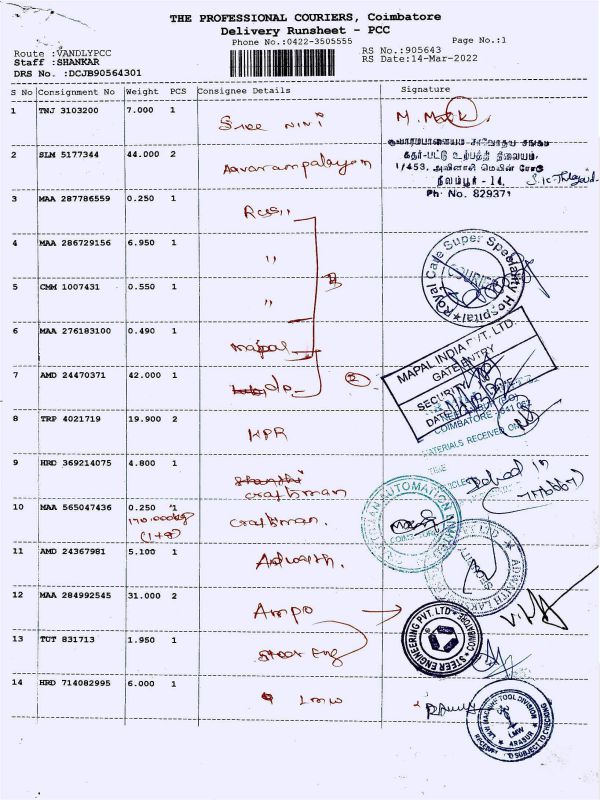 THE PROFESSIONAL COURIERS, Coimbatore
Delivery Runsheet - PCC
Phone No.:0422-3505555
Page No.:1
Route :VANDLYPCC
RS No.:905643
Staff :SHANKAR
RS Date:14-Mar-2022
DRS No. :DCJB90564301
S No Consignment No Weight PCS Consignee Details Signature
1 TNJ 3103200 7.000 1 Sree NINI
2 SLM 5177344 44.000 2 Aavarampalayam
கதர்-பட்டு உற்பத்தி நிலையம்,
1/453, அவினாசி மெயின் ரோடு
நீலம்பூர் - 14.
Ph: No. 829371
3 MAA 287786559 0.250 1
4 MAA 286729156 6.950 1 "
Royal Care Super Speciality Hospital
COURIER
5 CMM 1007431 0.550 1 "
6 MAA 276183100 0.490 1 mapal
MAPAL INDIA PVT. LTD.
GATE ENTRY
SECURITY
7 AMD 24470371 42.000 1
COIMBATORE
MATERIALS RECEIVED ON
8 TRP 4021719 19.900 2 KPR
TIME
9 HRD 369214075 4.800 1 craftsman
10 MAA 565047436 0.250 1 craftsman.
(1+8)
AUTOMATION
11 AMD 24367981 5.100 1 Adwaith.
ADWAITH LAK
SECURITY
12 MAA 284992545 31.000 2 Ampo
13 TCT 831713 1.950 1 Steer Eng
STEER ENGINEERING PVT. LTD
COIMBATORE
14 HRD 714082995 6.000 1 LMW
LMW MACHINE TOOL DIVISION
LMW
ARASUR
SUBJECT TO CHECKING